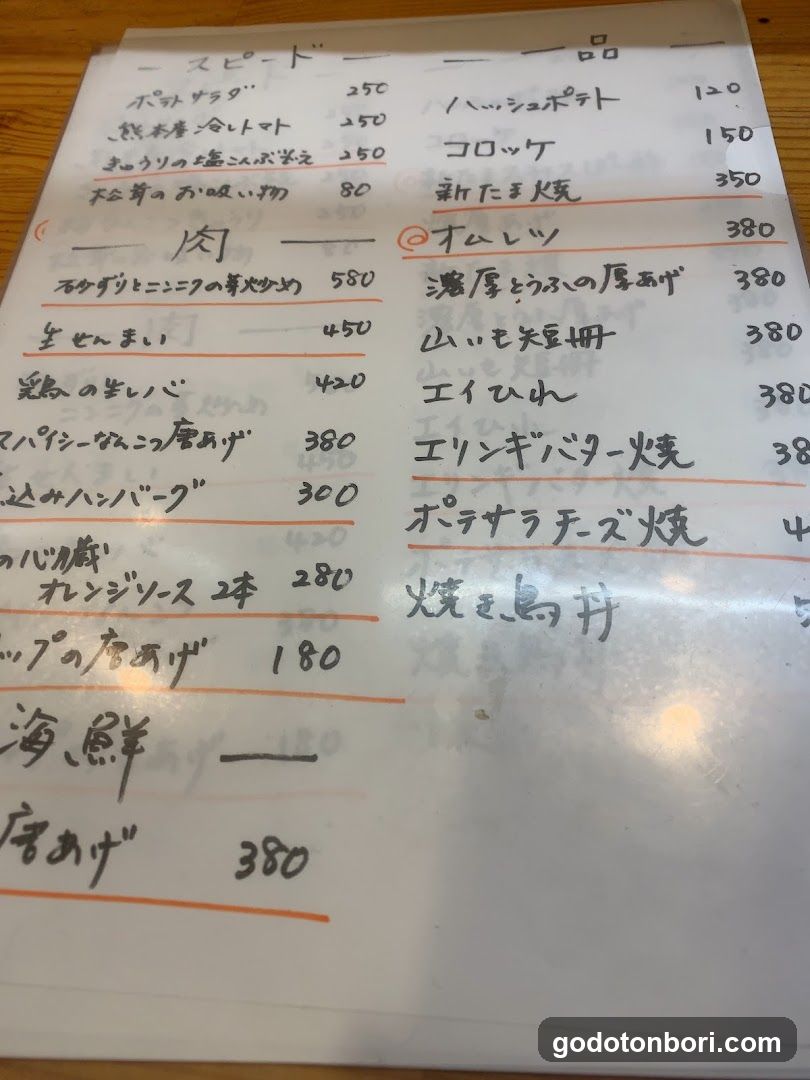 スピード
ポテトサラダ 250
熊本産冷しトマト 250
きゅうりの塩こんぶ和え 250
松茸のお吸い物 80
肉
砂ずりとニンニクの芽炒め 580
生せんまい 450
鶏の生レバ 420
スパイシーなんこつ唐あげ 380
込みハンバーグ 300
の心臓
オレンジソース 2本 280
ップの唐あげ 180
海鮮
唐あげ 380
一品
ハッシュポテト 120
コロッケ 150
新たま焼 350
オムレツ 380
濃厚とうふの厚あげ 380
山いも短冊 380
エイひれ 380
エリンギバター焼 38
ポテサラチーズ焼 4
焼き鳥丼
godotonbori.com